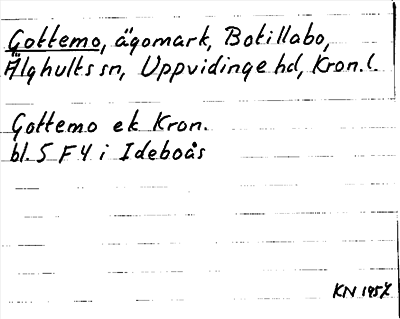 Gottemo, ägomark, Botillabo,
Älghults sn, Uppvidinge hd, Kron. l.
Gottemo ek Kron.
bl. 5 F 4 i Ideboås
KN 1957